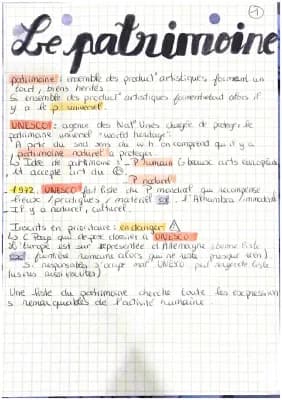 1
Le patrimoine
patrimoine : ensemble des product° artistiques formant un
tout, biens hérités
ensemble des product° artistiques alors il
y a le p. universel.
UNESCO : agence des Nat° Unies chargée de protéger le
patrimoine universel "world heritage".
A partir du sens du w.h on comprend qu'il y a
patrimoine naturel à protéger
↳ Liste de patrimoine : - P humain (beaux arts européens
et accepte l'art du
- P naturel
- 1972, UNESCO fait liste du P mondial qui récompense
lieux / pratiques / matériel l'Alhambra / immatériel
- Il y a naturel, culturel.
Inscrits en prioritaire : en danger
↳ C Pays qui dépose dossier à UNESCO
Europe est sur-représentée Allemagne
frontière romaine alors qu'il ne reste presque rien).
UNESCO peut
aussi
Une liste du patrimoine cherche toute les expressions
remarquables de l'activité humaine.